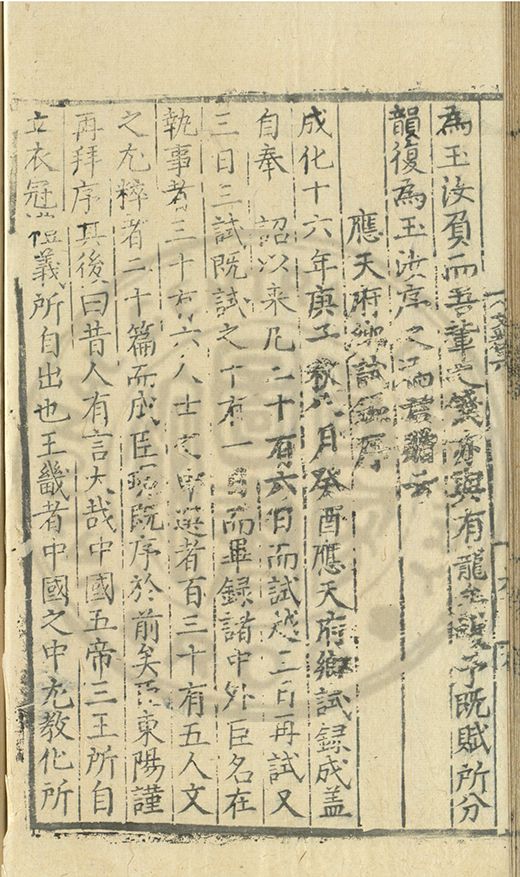 為玉汝賀而吾輩之餞亦與有龍光予既賦所分
韻復為玉汝序之而書云
應天府鄉試錄序
成化十六年庚子秋八月癸酉應天府鄉試録成盖
自奉 詔以来凡二十有六日而試越三日再試又
三日三試既試之十有一日而畢録諸中外臣名在
執事者三十有六人士之中選者百三十有五人文
之尤粹者二十篇而成臣既序於前矣臣東陽謹
再拜序其後曰昔人有言大哉中國五帝三王所自
立衣冠禮義所自出也王畿者中國之中尤教化所